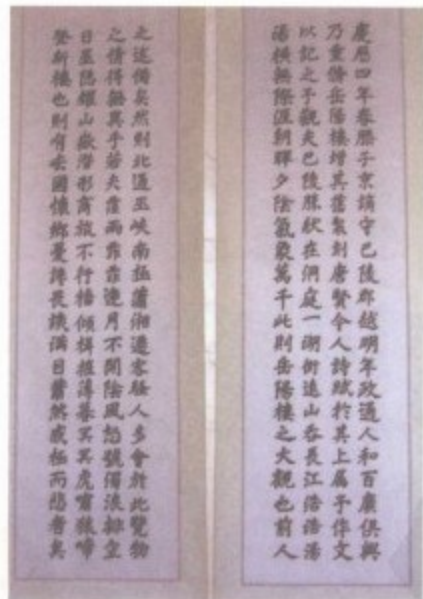 慶曆四年春滕子京謫守巴陵郡越明年政通人和百廢俱興
乃重脩岳陽樓增其舊製刻唐賢今人詩賦於其上屬予作文
以記之予觀夫巴陵勝狀在洞庭一湖銜遠山吞長江浩浩湯
湯橫無際涯朝暉夕陰氣象萬千此則岳陽樓之大觀也前人
之述備矣然則北通巫峽南極瀟湘遷客騷人多會於此覽物
之情得無異乎若夫霪雨霏霏連月不開陰風怒號濁浪排空
日星隱耀山嶽潛形商旅不行檣傾楫摧薄暮冥冥虎嘯猿啼
登斯樓也則有去國懷鄉憂讒畏譏滿目蕭然感極而悲者矣